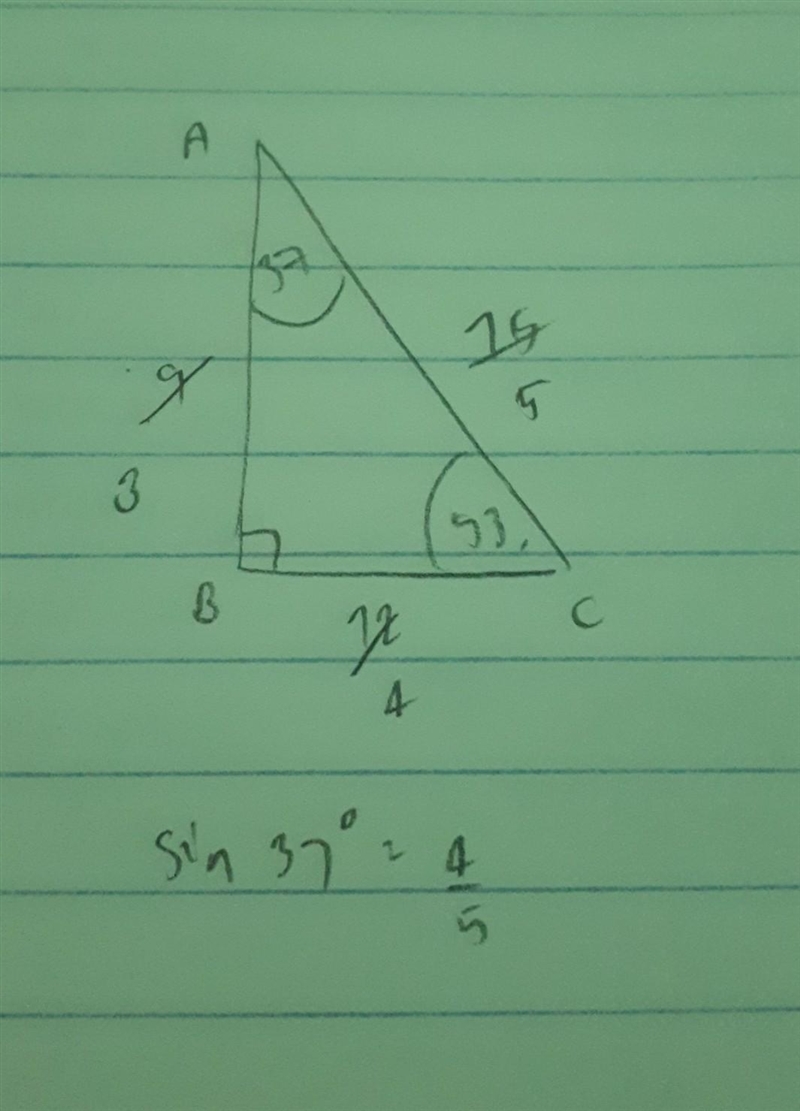 A
37
15
9
5
3
53.
B
C
12
4
sin 37° = 4/5